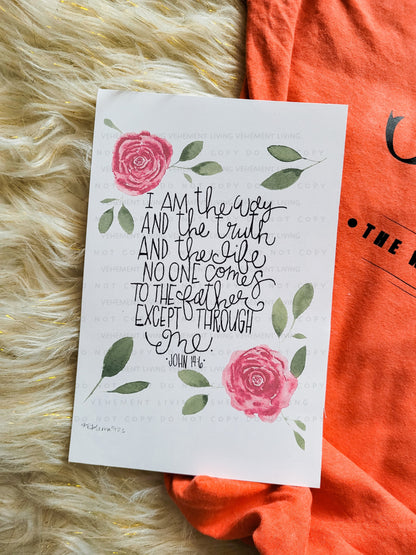 I AM the way
AND the truth
AND the life
NO ONE comes
TO THE father
EXCEPT THROUGH
me.
·JOHN 14:6·
VEHEMENT LIVING VEHEMENT LIVING
DO NOT COPY DO NOT COPY
•THE